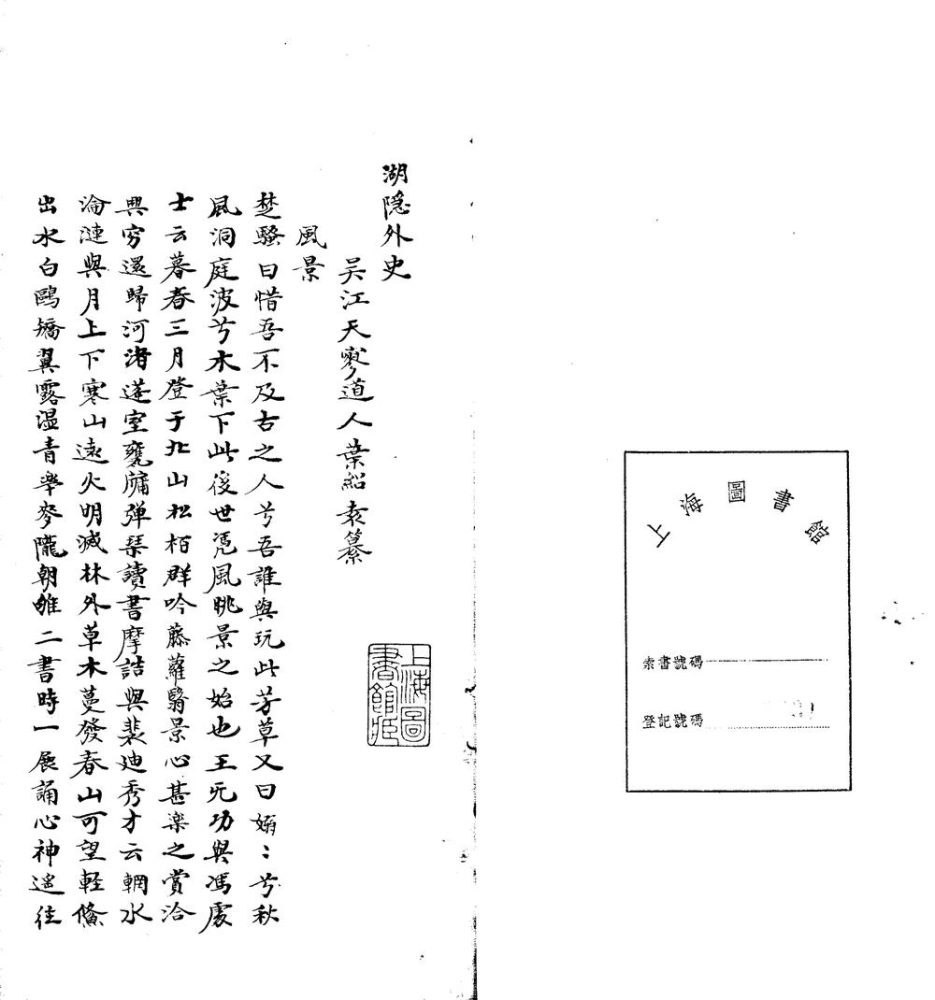 上海圖書館
索書號碼
登記號碼
湖隱外史
吴江天寥道人葉紹袁纂
上海圖書館藏
風景
楚騷曰惜吾不及古之人兮吾誰與玩此芳草又曰嫋:兮秋
風洞庭波兮木葉下此後世凭風眺景之始也王无功與馮處
士云暮春三月登于北山松栢群吟藤蘿翳景心甚楽之賞洽
興窮還歸河渚蓬室甕牖弹琹讀書摩詰與裴迪秀才云輞水
淪漣與月上下寒山遠火明滅林外草木蔓發春山可望輕鯈
出水白鷗矯翼露湿青皋麥隴朝雊二書時一展誦心神遥往